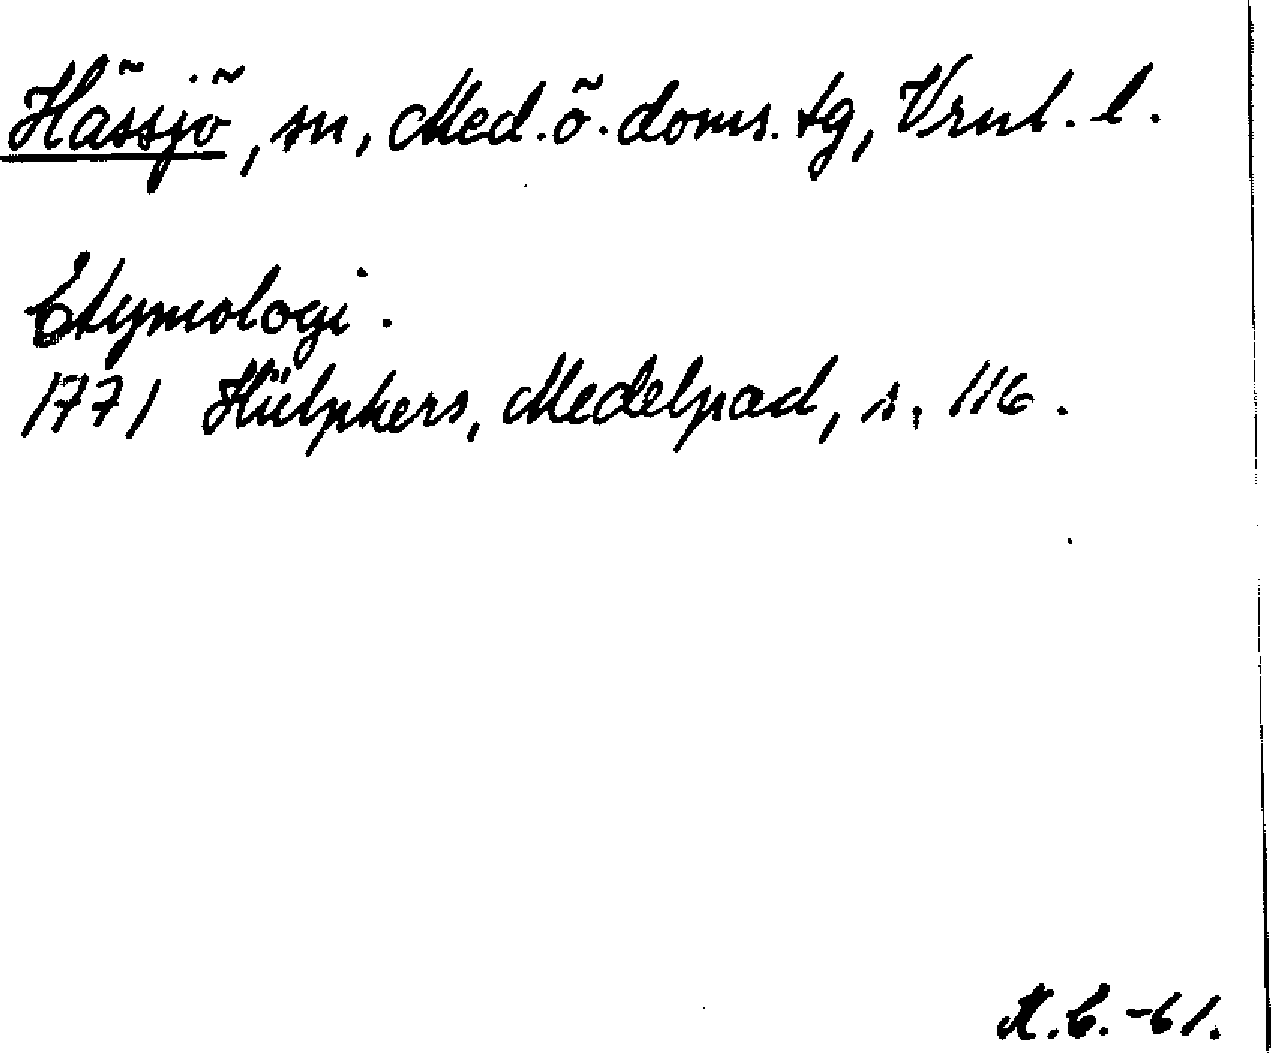 Hässjö, sn, Med. ö. doms. tg, Vrnl. l.
Etymologi.
1771 Hülphers, Medelpad, s. 116.
K.C.-61.